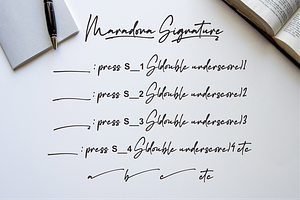 Maradona Signature
: press S__1 S(double underscore)1
: press S__2 S(double underscore)2
: press S__3 S(double underscore)3
: press S__4 S(double underscore)4 etc
a b c etc